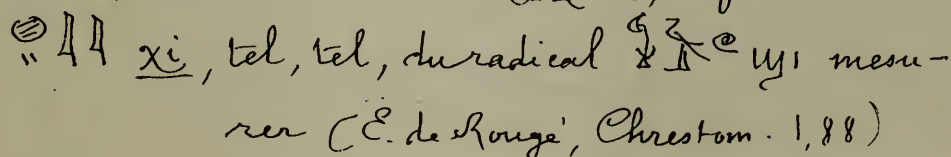 𓐍𓏭𓇋𓇋 xi, tel, tel, du radical ϣⲓ mesu-
rer (E. de Rougé, Chrestom. 1,88)